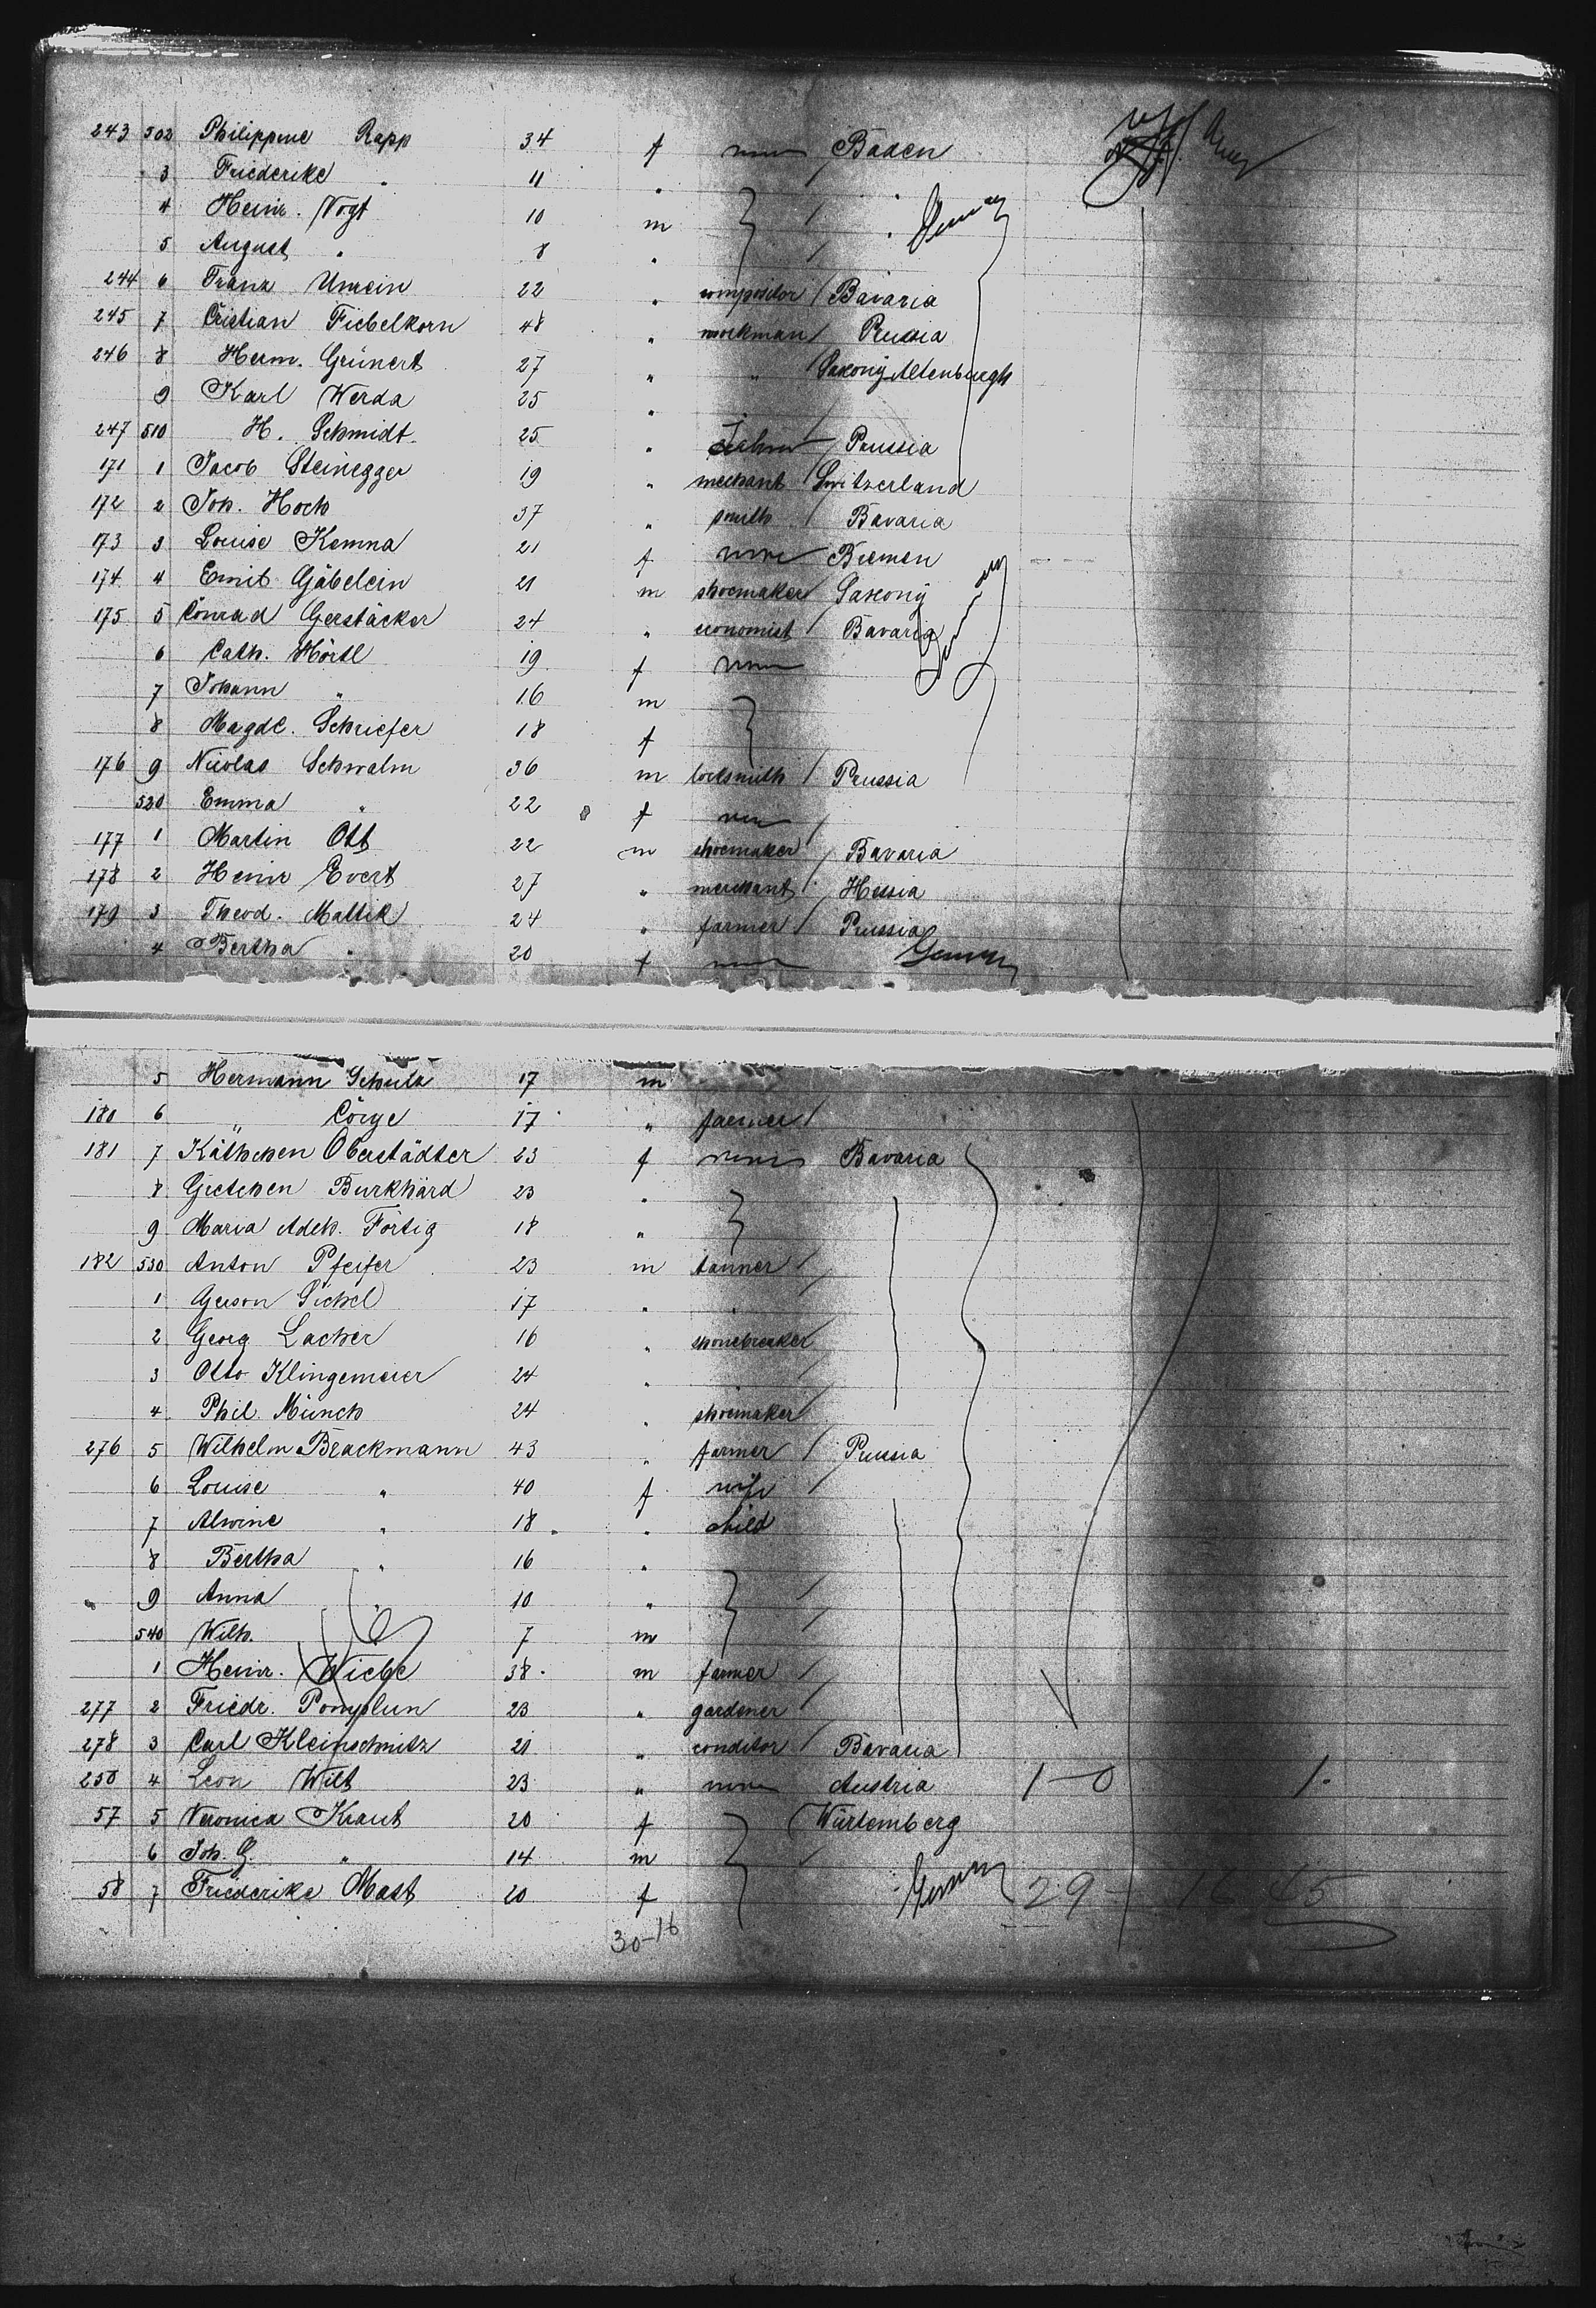 243 502 Philippine Rapp 34 f none Baden
3 Friederike " 11 "
4 Heinr. Vogt 10 m
5 August " 8 "
244 6 Franz Unrein 22 " compositor Bavaria
245 7 Cristian Fiebelkorn 48 " workman Prussia
246 8 Herm. Grünert 27 " " Saxony Altenburgh
9 Karl Werda 25 "
247 510 H. Schmidt. 25 " Prussia
171 1 Jacob Steinegger 19 " mechant Switzerland
172 2 Joh. Hoch 37 " smith Bavaria
173 3 Louise Kemna 21 f none Bremen
174 4 Emil Gäbelein 21 m shoemaker Saxony
175 5 Conrad Gerstäcker 24 " economist Bavaria
6 Cath. Hörtl 19 f none
7 Johann " 16 m
8 Magdl. Schriefer 18 f
176 9 Nicolas Schwalm 36 m locksmith Prussia
520 Emma " 22 f none
177 1 Martin Ott 22 m shoemaker Bavaria
178 2 Heinr Evert 27 " merchant Hessia
179 3 Theod. Mattek 24 " farmer Prussia
4 Bertha " 20 f none German
5 Hermann Schulz 17 m
180 6 " Görge 17 " farmer
181 7 Käthchen Oberstädter 23 f none Bavaria
8 Gretchen Burkhärd 23 "
9 Maria Adeh. Förtig 18 "
182 530 Anton Pfeifer 23 m tanner
1 Gerson Sichel 17 " "
2 Georg Lacher 16 " stonebreaker
3 Otto Klingemeier 24 "
4 Phil. Münch 24 " shoemaker
276 5 Wilhelm Brackmann 43 " farmer Prussia
6 Louise " 40 f wife
7 Alwine " 18 " child
8 Bertha " 16 "
9 Anna " 10 "
540 Wilh. 7 m
1 Heinr. Wiebe 38 m farmer
277 2 Friedr. Pomplun 23 " gardener
278 3 Carl Kleinschmitz 21 " conditor Bavaria
250 4 Leon Wilt 23 " none Austria 1-0 1.
57 5 Veronica Kraut 20 f Würtemberg
6 Joh. G. " 14 m
58 7 Friederike Mast 20 f German 29 - 1 45
30-16